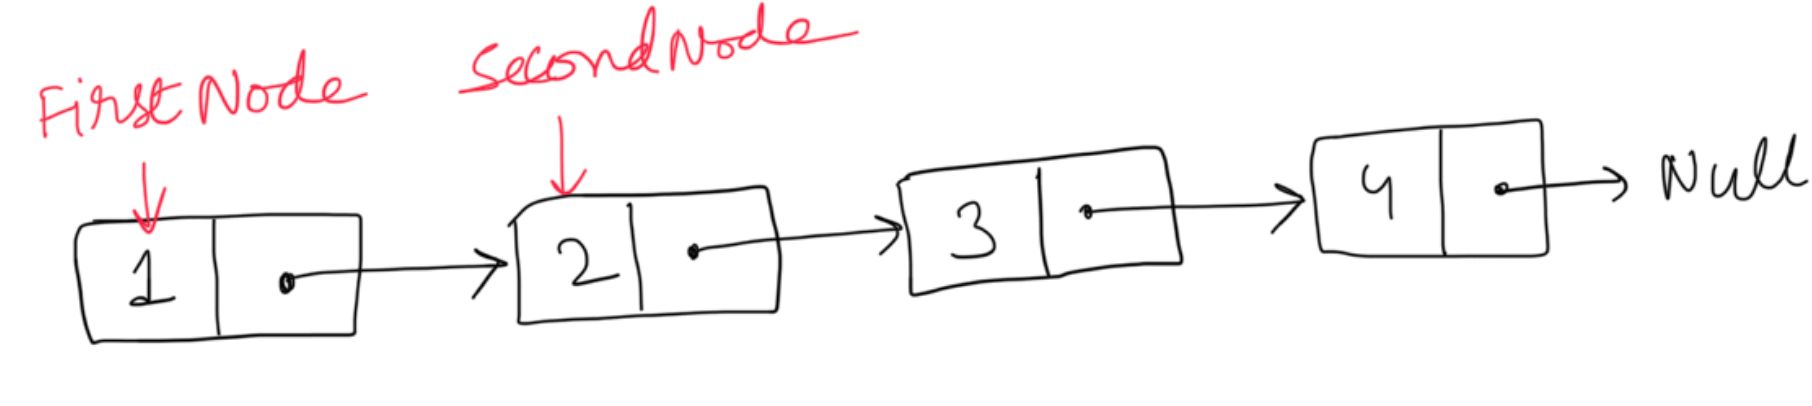 FirstNode
SecondNode
1 2 3 4 Null